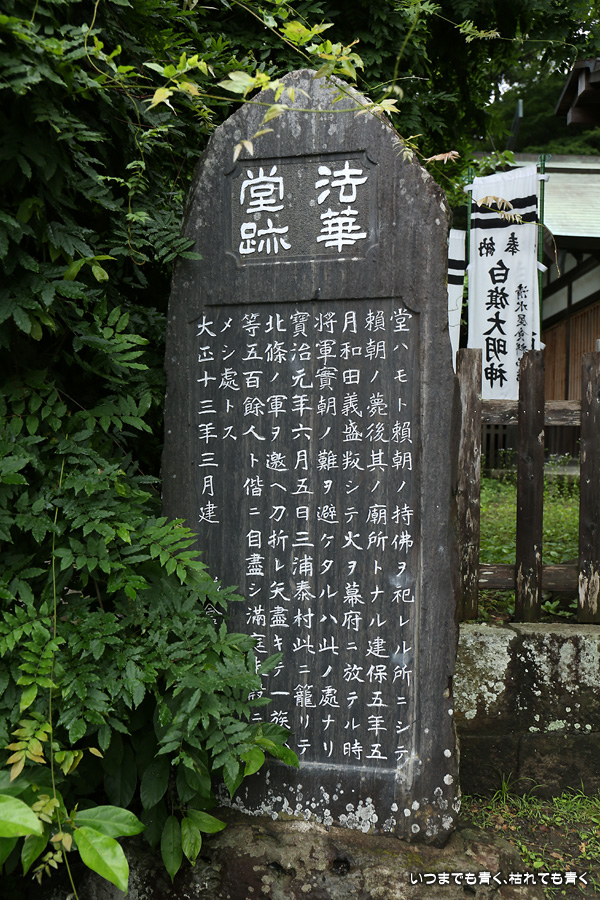 法華
堂跡
堂ハモト頼朝ノ持佛ヲ祀レル所ニシテ
頼朝ノ薨後其ノ廟所トナル建保五年五
月和田義盛叛シテ火ヲ幕府ニ放テル時
将軍實朝ノ難ヲ避ケタルハ此ノ處ナリ
寶治元年六月五日三浦泰村此ニ籠リテ
北條ノ軍ヲ邀ヘ刀折レ矢盡キテ一族
等五百餘人ト偕ニ自盡シ満庭朱殷ニ
メシ處トス
大正十三年三月建
奉納
白旗大明神
清水屋
いつまでも青く、枯れても青く